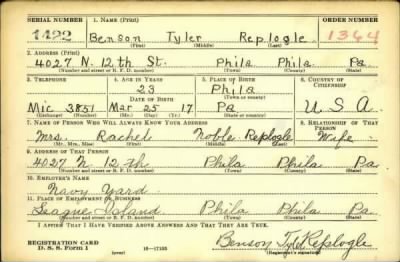 SERIAL NUMBER 1. NAME (Print) ORDER NUMBER
1422 Benson Tyler Replogle 1364
(First) (Middle) (Last)
2. ADDRESS (Print)
4027 N. 12th St. Phila Phila Pa.
(Number and street) (Town) (County) (State)
3. TELEPHONE 4. AGE IN YEARS 5. PLACE OF BIRTH 6. COUNTRY OF CITIZENSHIP
23 Phila
DATE OF BIRTH (Town or county)
Mic 3851 Mar 25 17 Pa U S A
(Exchange) (Number) (Mo.) (Day) (Yr.) (State or country)
7. NAME OF PERSON WHO WILL ALWAYS KNOW YOUR ADDRESS 8. RELATIONSHIP OF THAT PERSON
Mrs. Rachel Noble Replogle Wife
(Mr., Mrs., Miss) (First) (Middle) (Last)
9. ADDRESS OF THAT PERSON
4027 N. 12 th Phila Phila Pa
(Number and street) (Town) (County) (State)
10. EMPLOYER'S NAME
Navy Yard
11. PLACE OF EMPLOYMENT OR BUSINESS
League Island Phila Phila Pa
(Number and street) (Town) (County) (State)
I AFFIRM THAT I HAVE VERIFIED ABOVE ANSWERS AND THAT THEY ARE TRUE.
REGISTRATION CARD
D. S. S. Form 1 (over) 16—17105 Benson Tyler Replogle
(Registrant's signature)